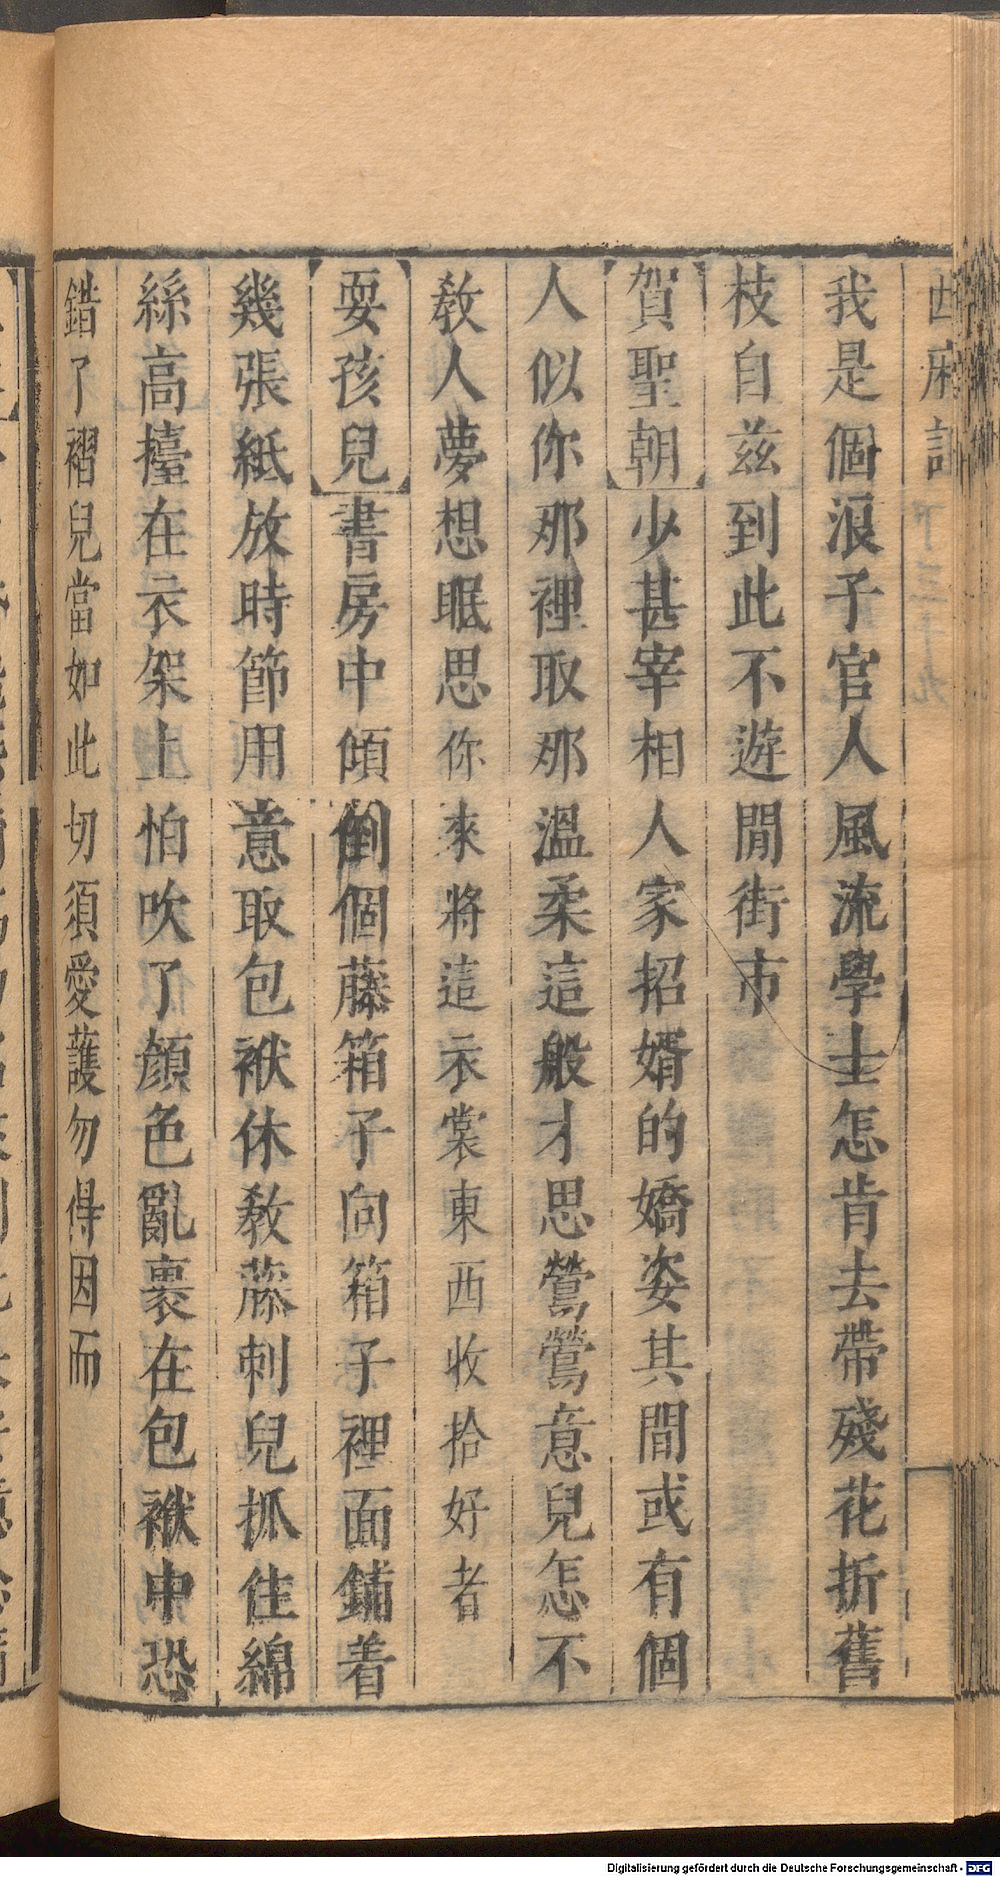 我是個浪子官人風流學士怎肯去帶殘花折舊
枝自茲到此不遊閒街市
賀聖朝少甚宰相人家招婿的嬌姿其間或有個
人似你那裡取那溫柔這般才思鶯鶯意兒怎不
教人夢想眠思你來將這衣裳東西收拾好者
耍孩兒書房中傾倒個藤箱子向箱子裡面鋪着
幾張紙放時節用意取包袱休教藤刺兒抓住綿
絲高擡在衣架上怕吹了顏色亂裹在包袱中恐
錯了褶兒當如此切須愛護勿得因而
Digitalisierung gefördert durch die Deutsche Forschungsgemeinschaft - DFG